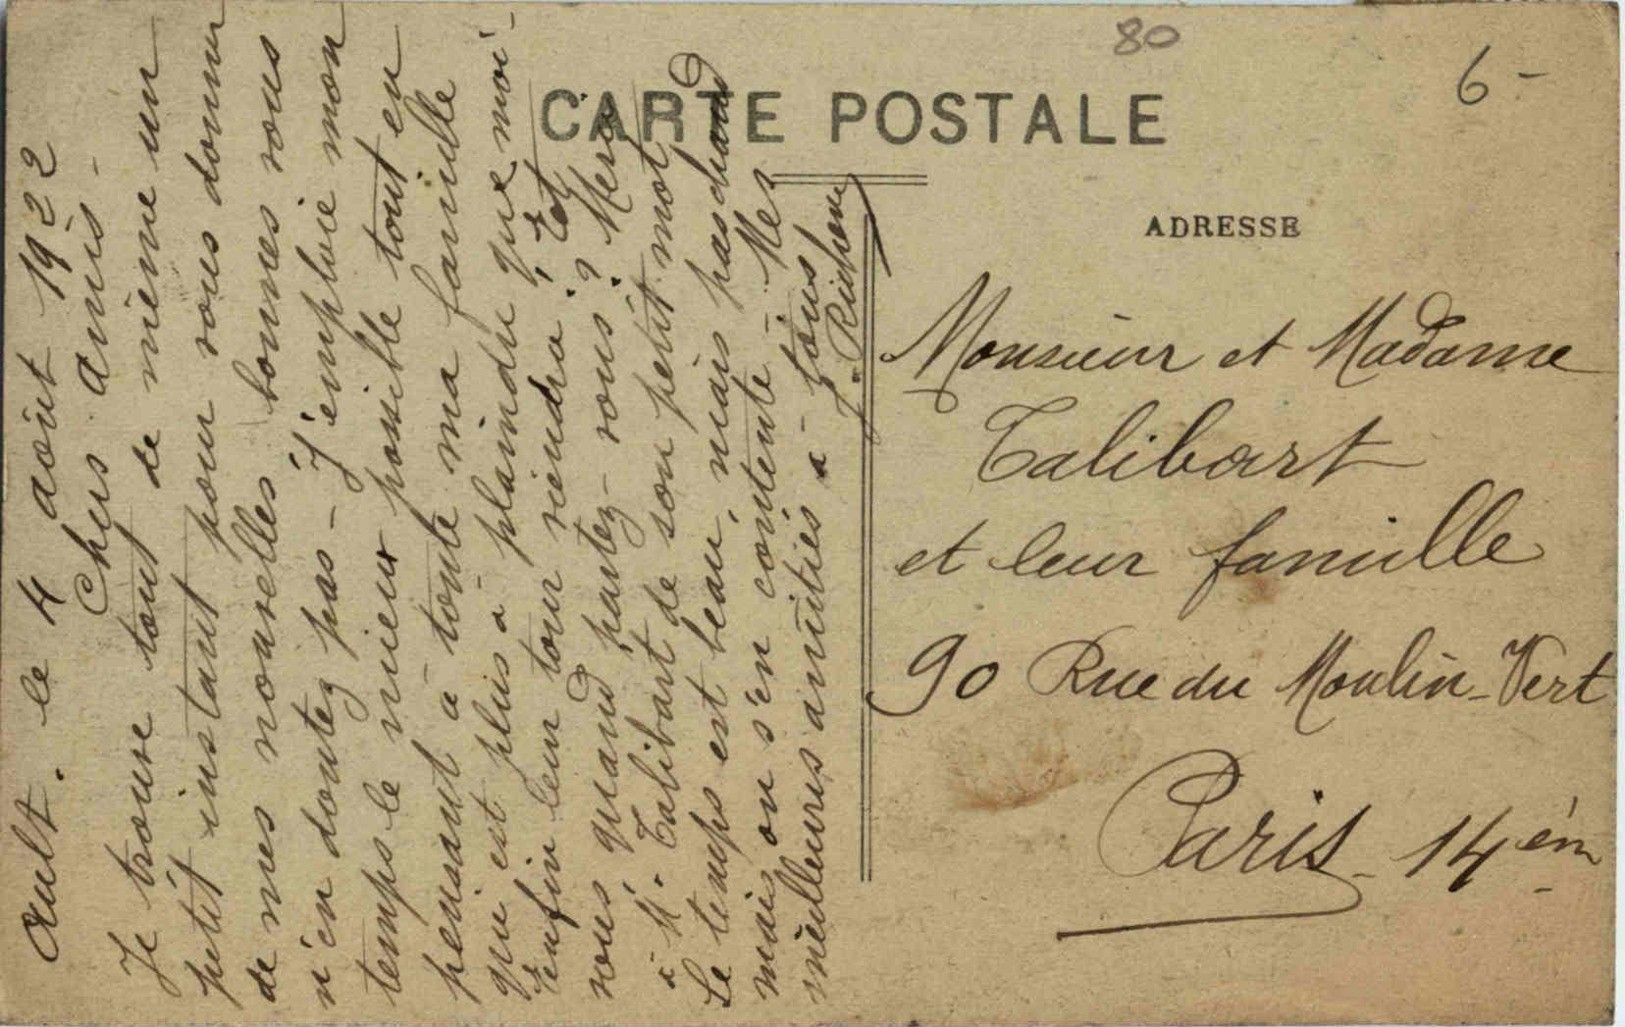 80
6-
CARTE POSTALE
ADRESSE
Ault. le 4 août 1922
Chers amis -
Je trouve tout de même un
petit instant pour vous donner
de mes nouvelles, bonnes vous
n'en doutez pas - J'emploie mon
temps le mieux possible tout en
pensant à toute ma famille
qui est plus à plaindre que moi -
enfin leur tour viendra. Et
vous, quand partez-vous ? Merci
à M. Talibart de son petit mot
Le temps est beau, mais pas chaud
mais on s'en contente - Mes
meilleures amitiés à tous
Monsieur et Madame
Talibart
et leur famille
90 Rue du Moulin-Vert
Paris - 14ém